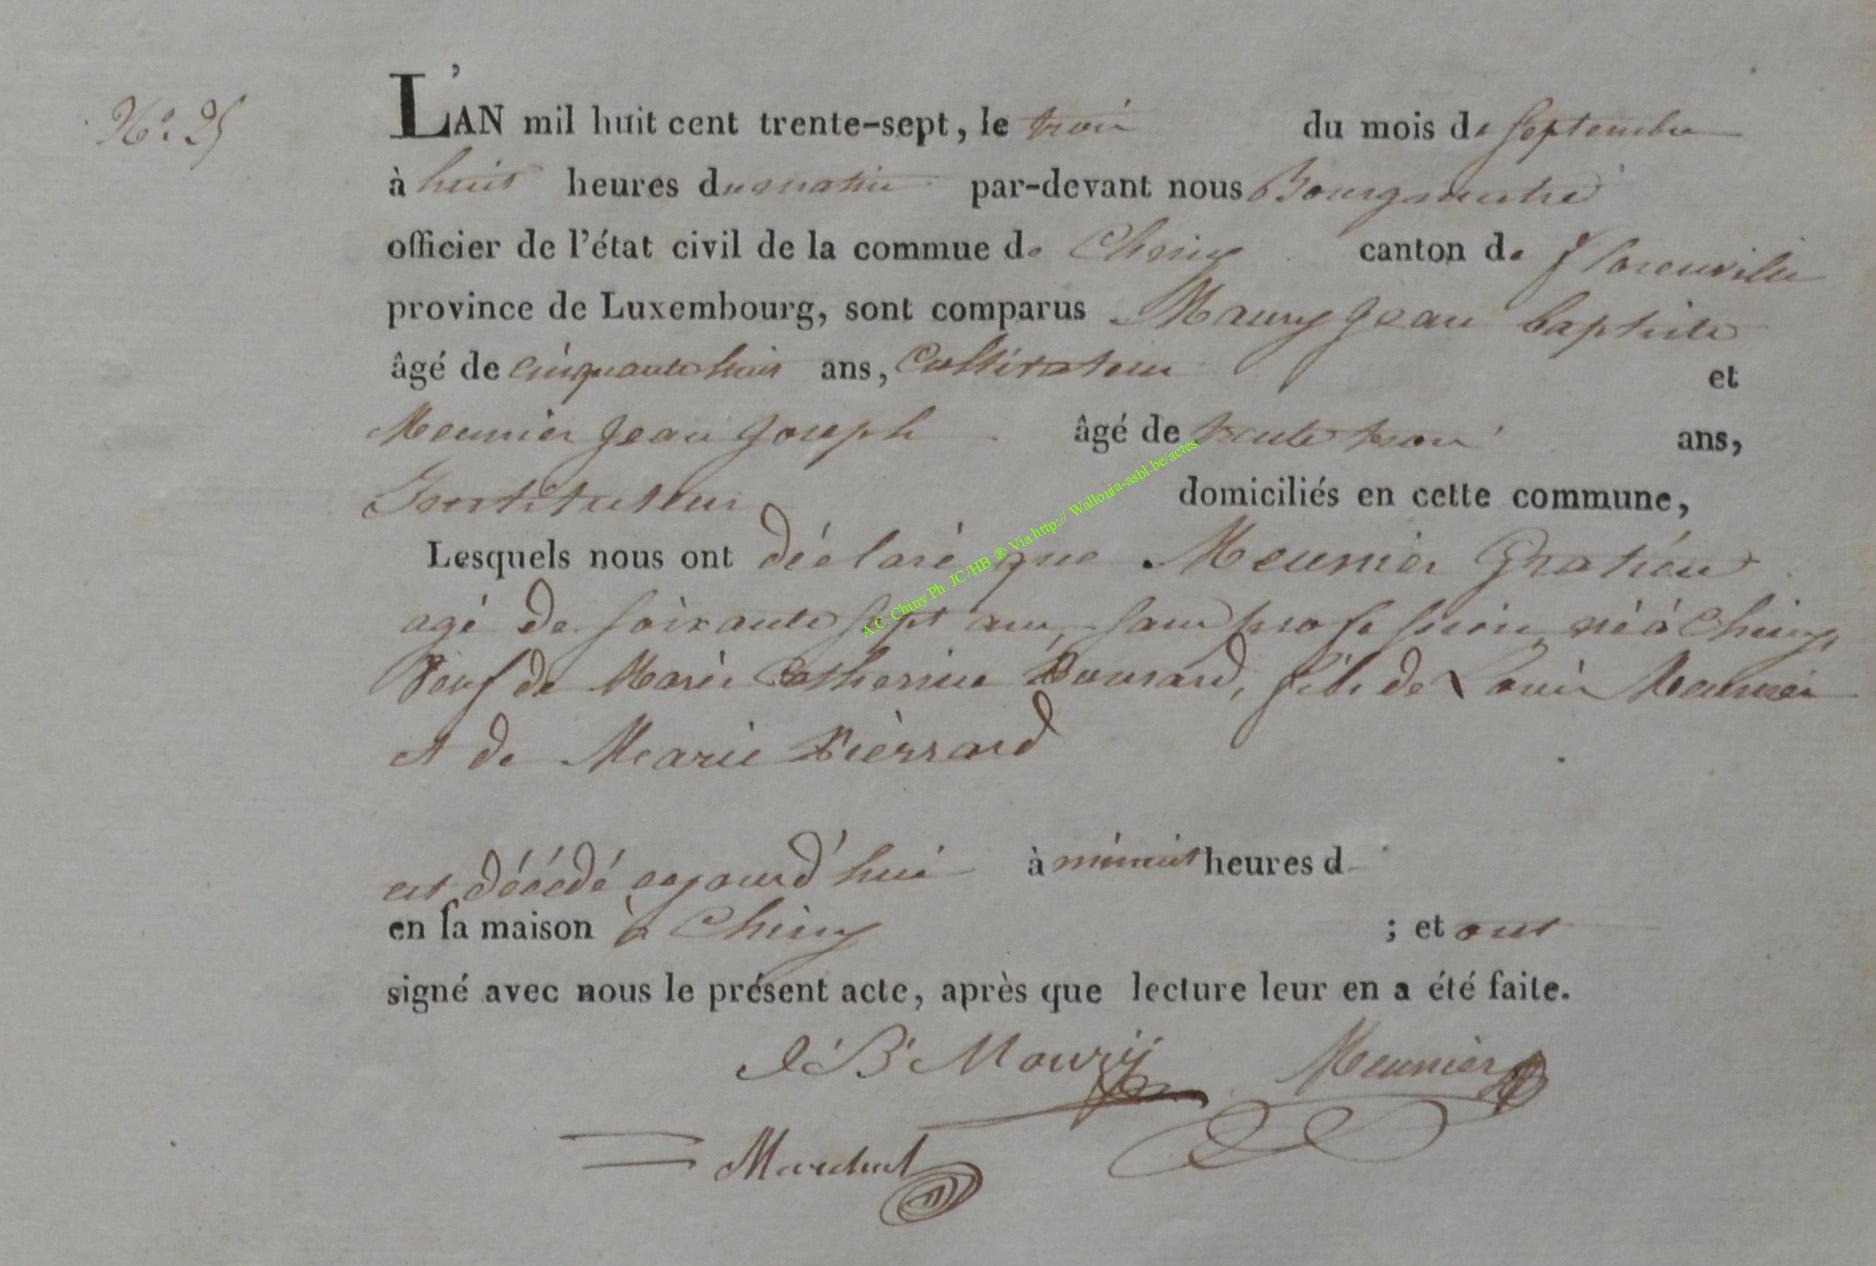 N.º 25
L'AN mil huit cent trente-sept, le trois du mois de Septembre
à huit heures du matin par-devant nous Bourgmestre
officier de l'état civil de la commue de Chiny canton de florenville
province de Luxembourg, sont comparus Maury Jean baptiste
âgé de cinquante huit ans, Cultivateur et
Meunier Jean Joseph âgé de trente trois ans,
Instituteur domiciliés en cette commune,
Lesquels nous ont déclaré que Meunier Gratien
agé de soixante sept ans, sans profession, né à Chiny,
Veuf de Marie Catherine fils de Louis Meunier
et de Marie Pièrrard
est décédé aujourd'hui à minuit heures d
en sa maison à Chiny ; et ont
signé avec nous le présent acte, après que lecture leur en a été faite.
J B Maury Meunier
Maréchal
A.C. Chiny Ph JC/HB ® Via http:// Wallonia-asbl.be/actes